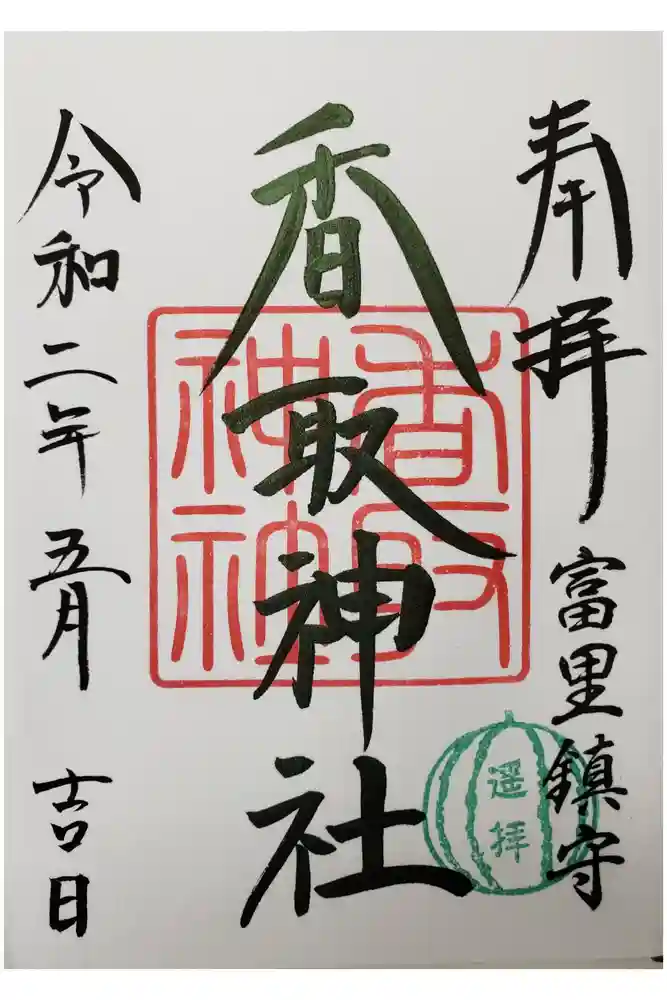 奉拝
富里鎮守
遥拝
香取神社
香取神社
令和二年五月 吉日